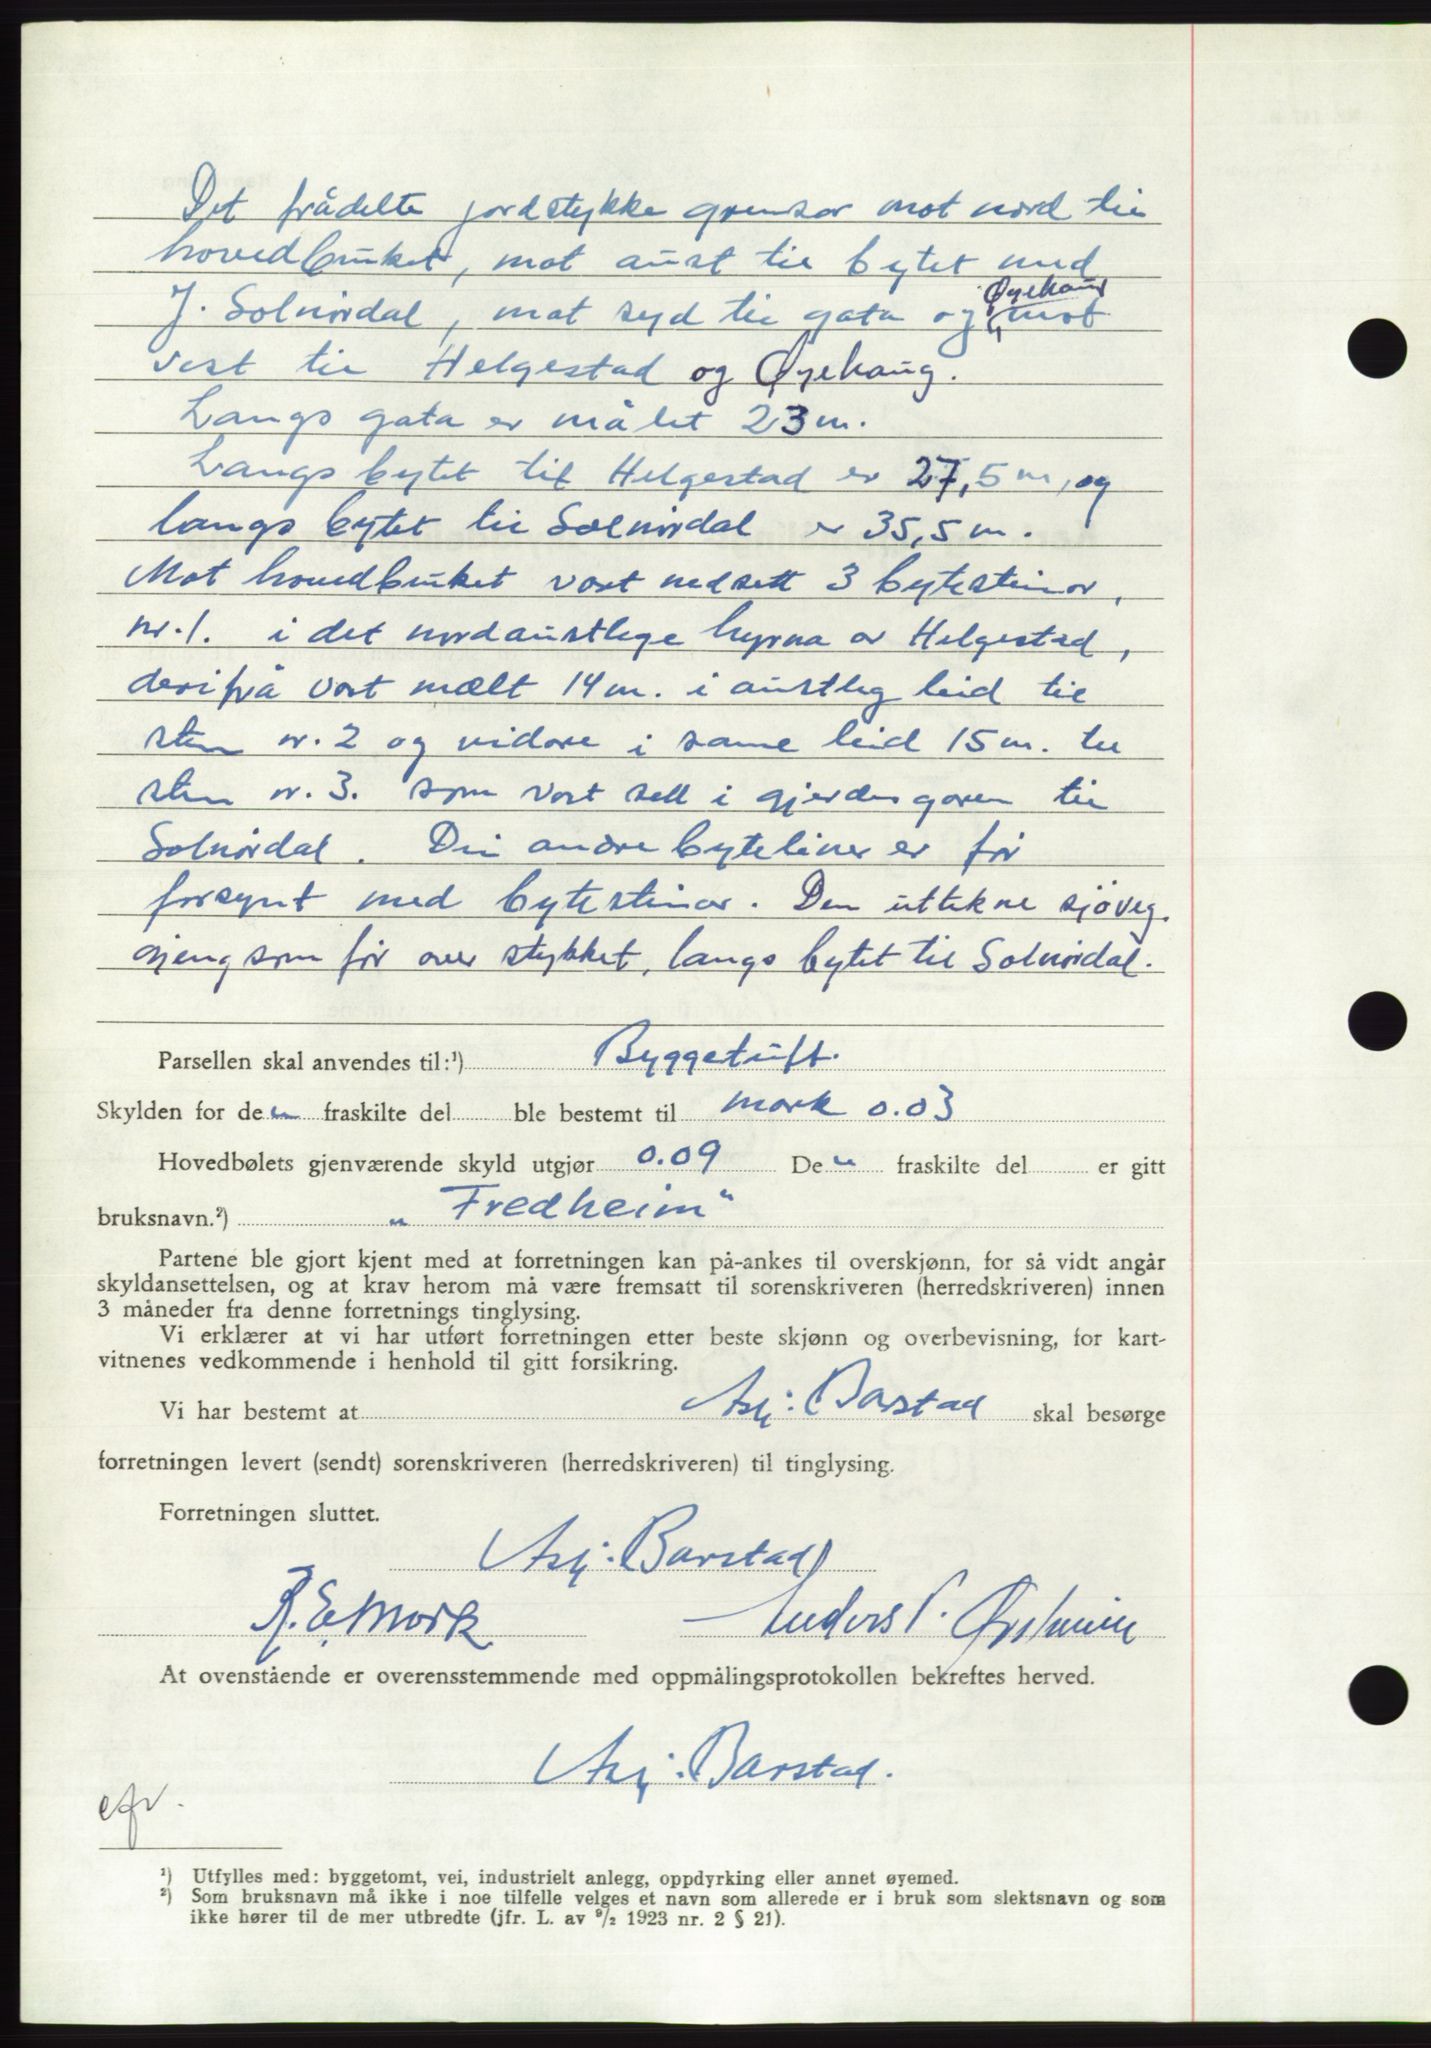 Det frådelte jordstykke grensar mot nord til
hovedbruket, mot aust til bytet med
Øyehaug
J. Solnørdal, mot syd til gata og mot
vest til Helgestad og Øyehaug.
Langs gata er målet 23 m.
Langs bytet til Helgestad er 27,5 m, og
langs bytet til Solnørdal er 35,5 m.
Mot hovedbruket vart nedsett 3 bytesteinar,
nr. 1. i det nordaustlege hyrna av Helgestad,
derifrå vart mælt 14 m. i austleg leid til
sten nr. 2 og vidare i same leid 15 m. til
sten nr. 3. som vart sett i gjerdesgaren til
Solnørdal. Dei andre byteliner er før
forsynt med bytesteinar. Den uttekne sjøveg
gjeng som før over stykket, langs bytet til Solnørdal.
Parsellen skal anvendes til:¹) Byggetuft.
Skylden for den fraskilte del ble bestemt til mark 0.03
Hovedbølets gjenværende skyld utgjør 0.09 Den fraskilte del er gitt
bruksnavn.²) „Fredheim“
Partene ble gjort kjent med at forretningen kan på-ankes til overskjønn, for så vidt angår
skyldansettelsen, og at krav herom må være fremsatt til sorenskriveren (herredskriveren) innen
3 måneder fra denne forretnings tinglysing.
Vi erklærer at vi har utført forretningen etter beste skjønn og overbevisning, for kart-
vitnenes vedkommende i henhold til gitt forsikring.
Vi har bestemt at Asj: Barstad skal besørge
forretningen levert (sendt) sorenskriveren (herredskriveren) til tinglysing.
Forretningen sluttet.
Asj: Barstad
R. E. Mork Anders P.
At ovenstående er overensstemmende med oppmålingsprotokollen bekreftes herved.
Asj: Barstad.
¹) Utfylles med: byggetomt, vei, industrielt anlegg, oppdyrking eller annet øyemed.
²) Som bruksnavn må ikke i noe tilfelle velges et navn som allerede er i bruk som slektsnavn og som
ikke hører til de mer utbredte (jfr. L. av ⁹/₂ 1923 nr. 2 § 21).